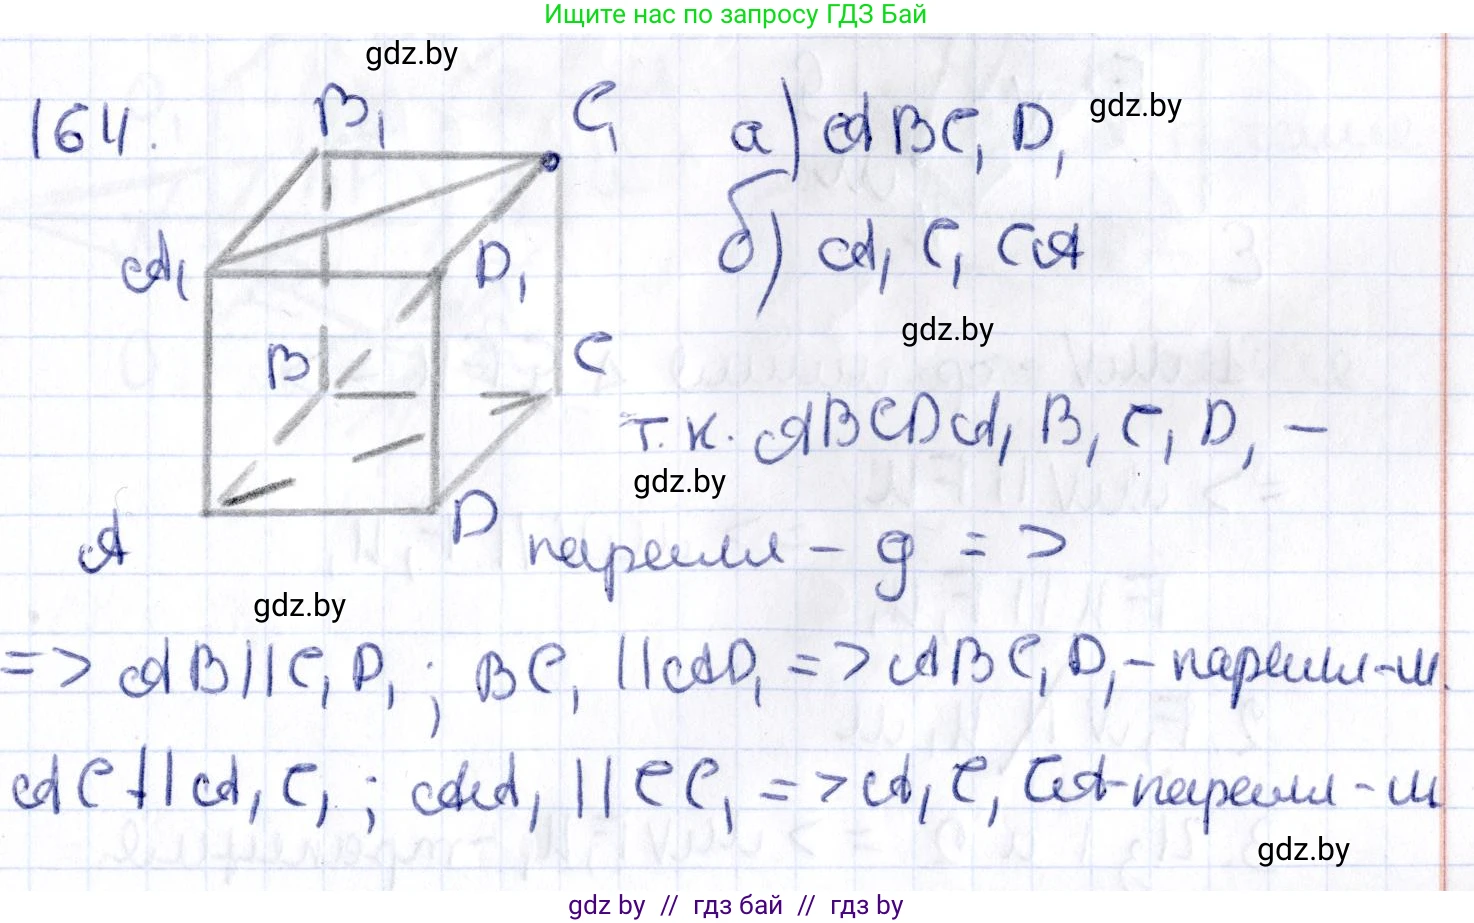 Ищите нас по запросу ГДЗ Бай
gdz.by
164.
B₁
C₁
а) ABC₁D₁
gdz.by
A₁
D₁
б) A₁C₁CA
gdz.by
B
C
т.к. ABCDA₁B₁C₁D₁ –
gdz.by
A
D
паралл – д =>
gdz.by
=> AB||C₁D₁; BC₁ ||AD₁ => ABC₁D₁ – паралл-м.
AC||A₁C₁; AA₁ ||CC₁ => A₁C₁CA-паралл-м
gdz.by
gdz by // гдз бай // гдз by